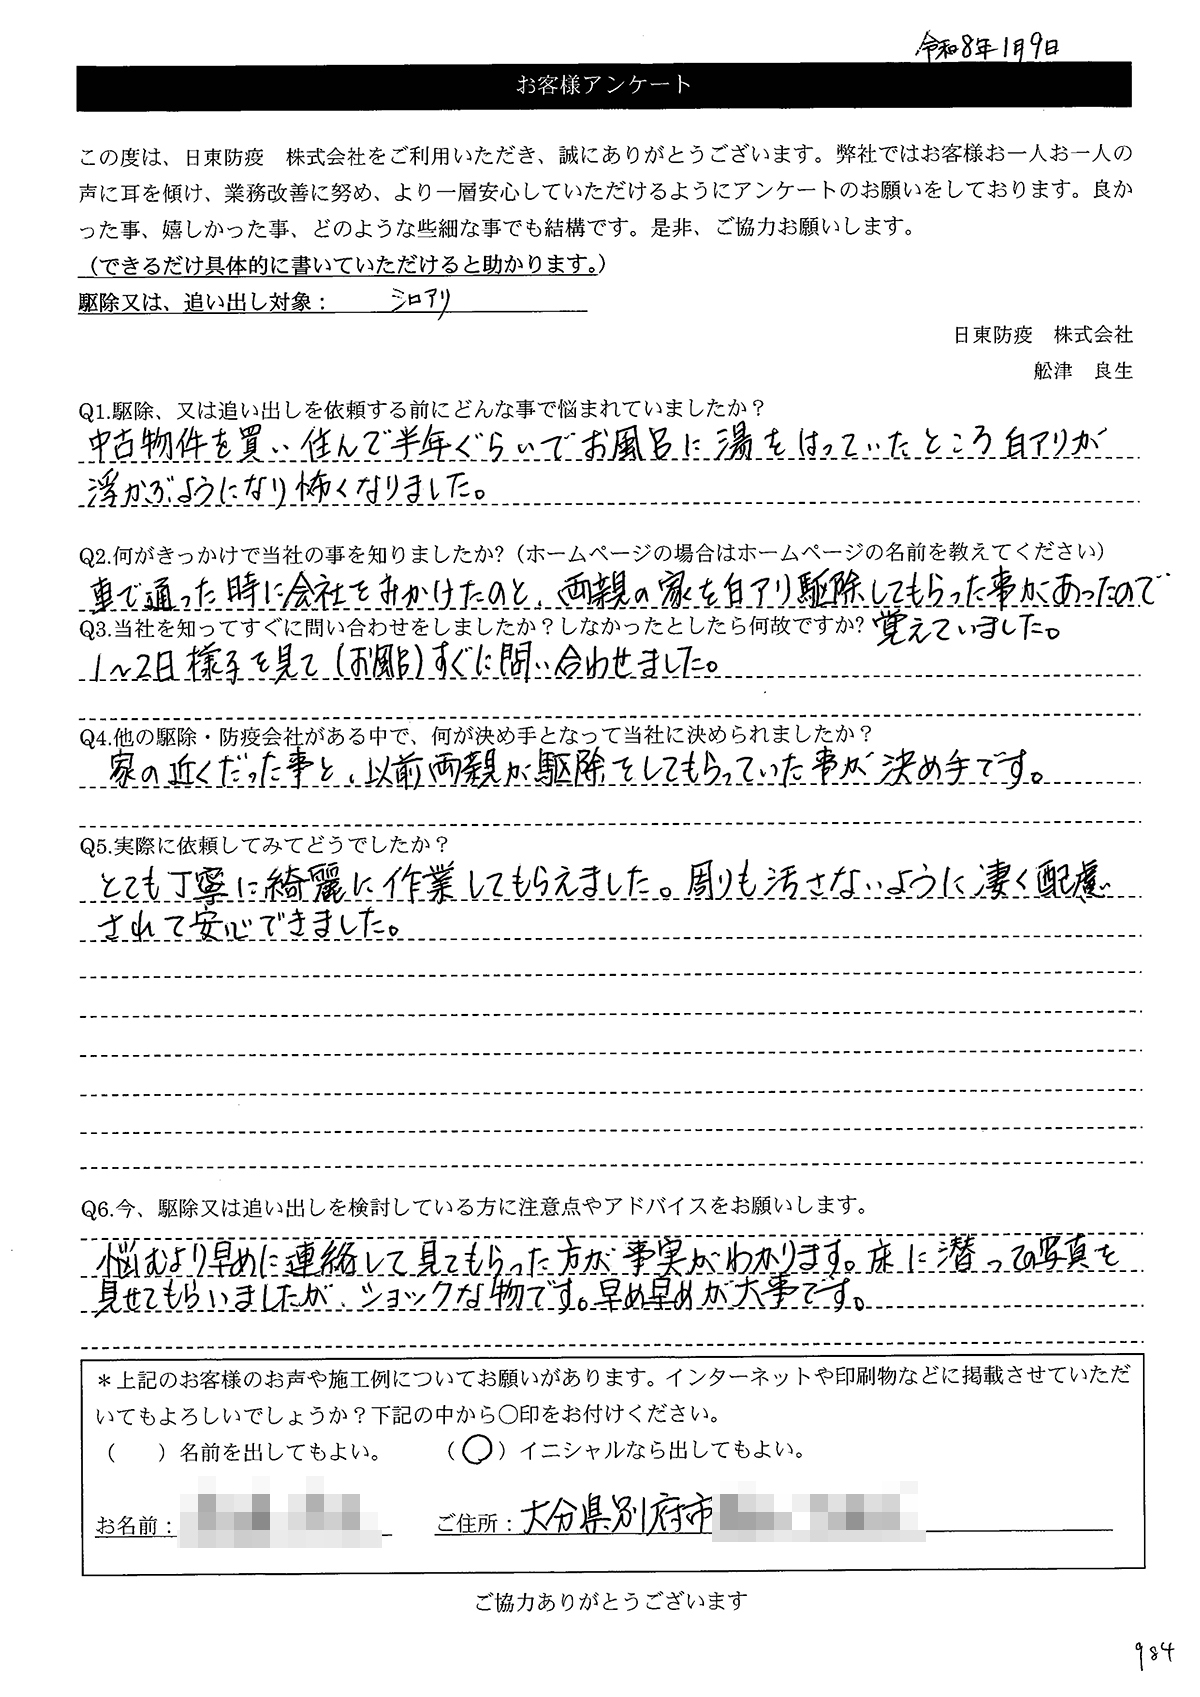 令和8年1月9日
お客様アンケート
この度は、日東防疫　株式会社をご利用いただき、誠にありがとうございます。弊社ではお客様お一人お一人の
声に耳を傾け、業務改善に努め、より一層安心していただけるようにアンケートのお願いをしております。良か
った事、嬉しかった事、どのような些細な事でも結構です。是非、ご協力お願いします。
（できるだけ具体的に書いていただけると助かります。）
駆除又は、追い出し対象：　シロアリ
日東防疫　株式会社
舩津　良生
Q1.駆除、又は追い出しを依頼する前にどんな事で悩まれていましたか？
中古物件を買い住んで半年ぐらいでお風呂に湯をはっていたところ白アリが
浮かぶようになり怖くなりました。
Q2.何がきっかけで当社の事を知りましたか?（ホームページの場合はホームページの名前を教えてください）
車で通った時に会社をみかけたのと、両親の家を白アリ駆除してもらった事があったので
覚えていました。
Q3.当社を知ってすぐに問い合わせをしましたか？しなかったとしたら何故ですか?
1～2日様子を見て(お風呂)すぐに問い合わせました。
Q4.他の駆除・防疫会社がある中で、何が決め手となって当社に決められましたか？
家の近くだった事と、以前両親が駆除をしてもらっていた事が決め手です。
Q5.実際に依頼してみてどうでしたか？
とても丁寧に綺麗に作業してもらえました。周りも汚さないように凄く配慮
されて安心できました。
Q6.今、駆除又は追い出しを検討している方に注意点やアドバイスをお願いします。
悩むより早めに連絡して見てもらった方が事実がわかります。床に潜っての写真を
見せてもらいましたが、ショックな物です。早め早めが大事です。
＊上記のお客様のお声や施工例についてお願いがあります。インターネットや印刷物などに掲載させていただ
いてもよろしいでしょうか？下記の中から〇印をお付けください。
（　　）名前を出してもよい。　（〇）イニシャルなら出してもよい。
お名前：　ご住所：大分県別府市
ご協力ありがとうございます
984